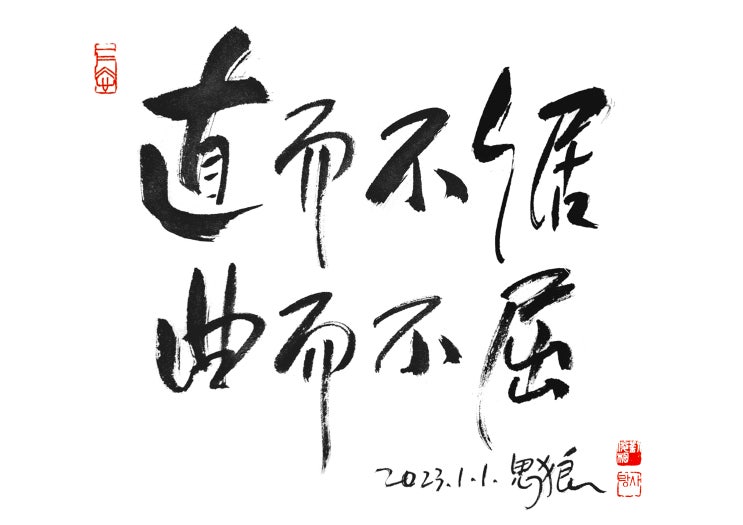 直而不倨
曲而不屈
2023.1.1. 思狼